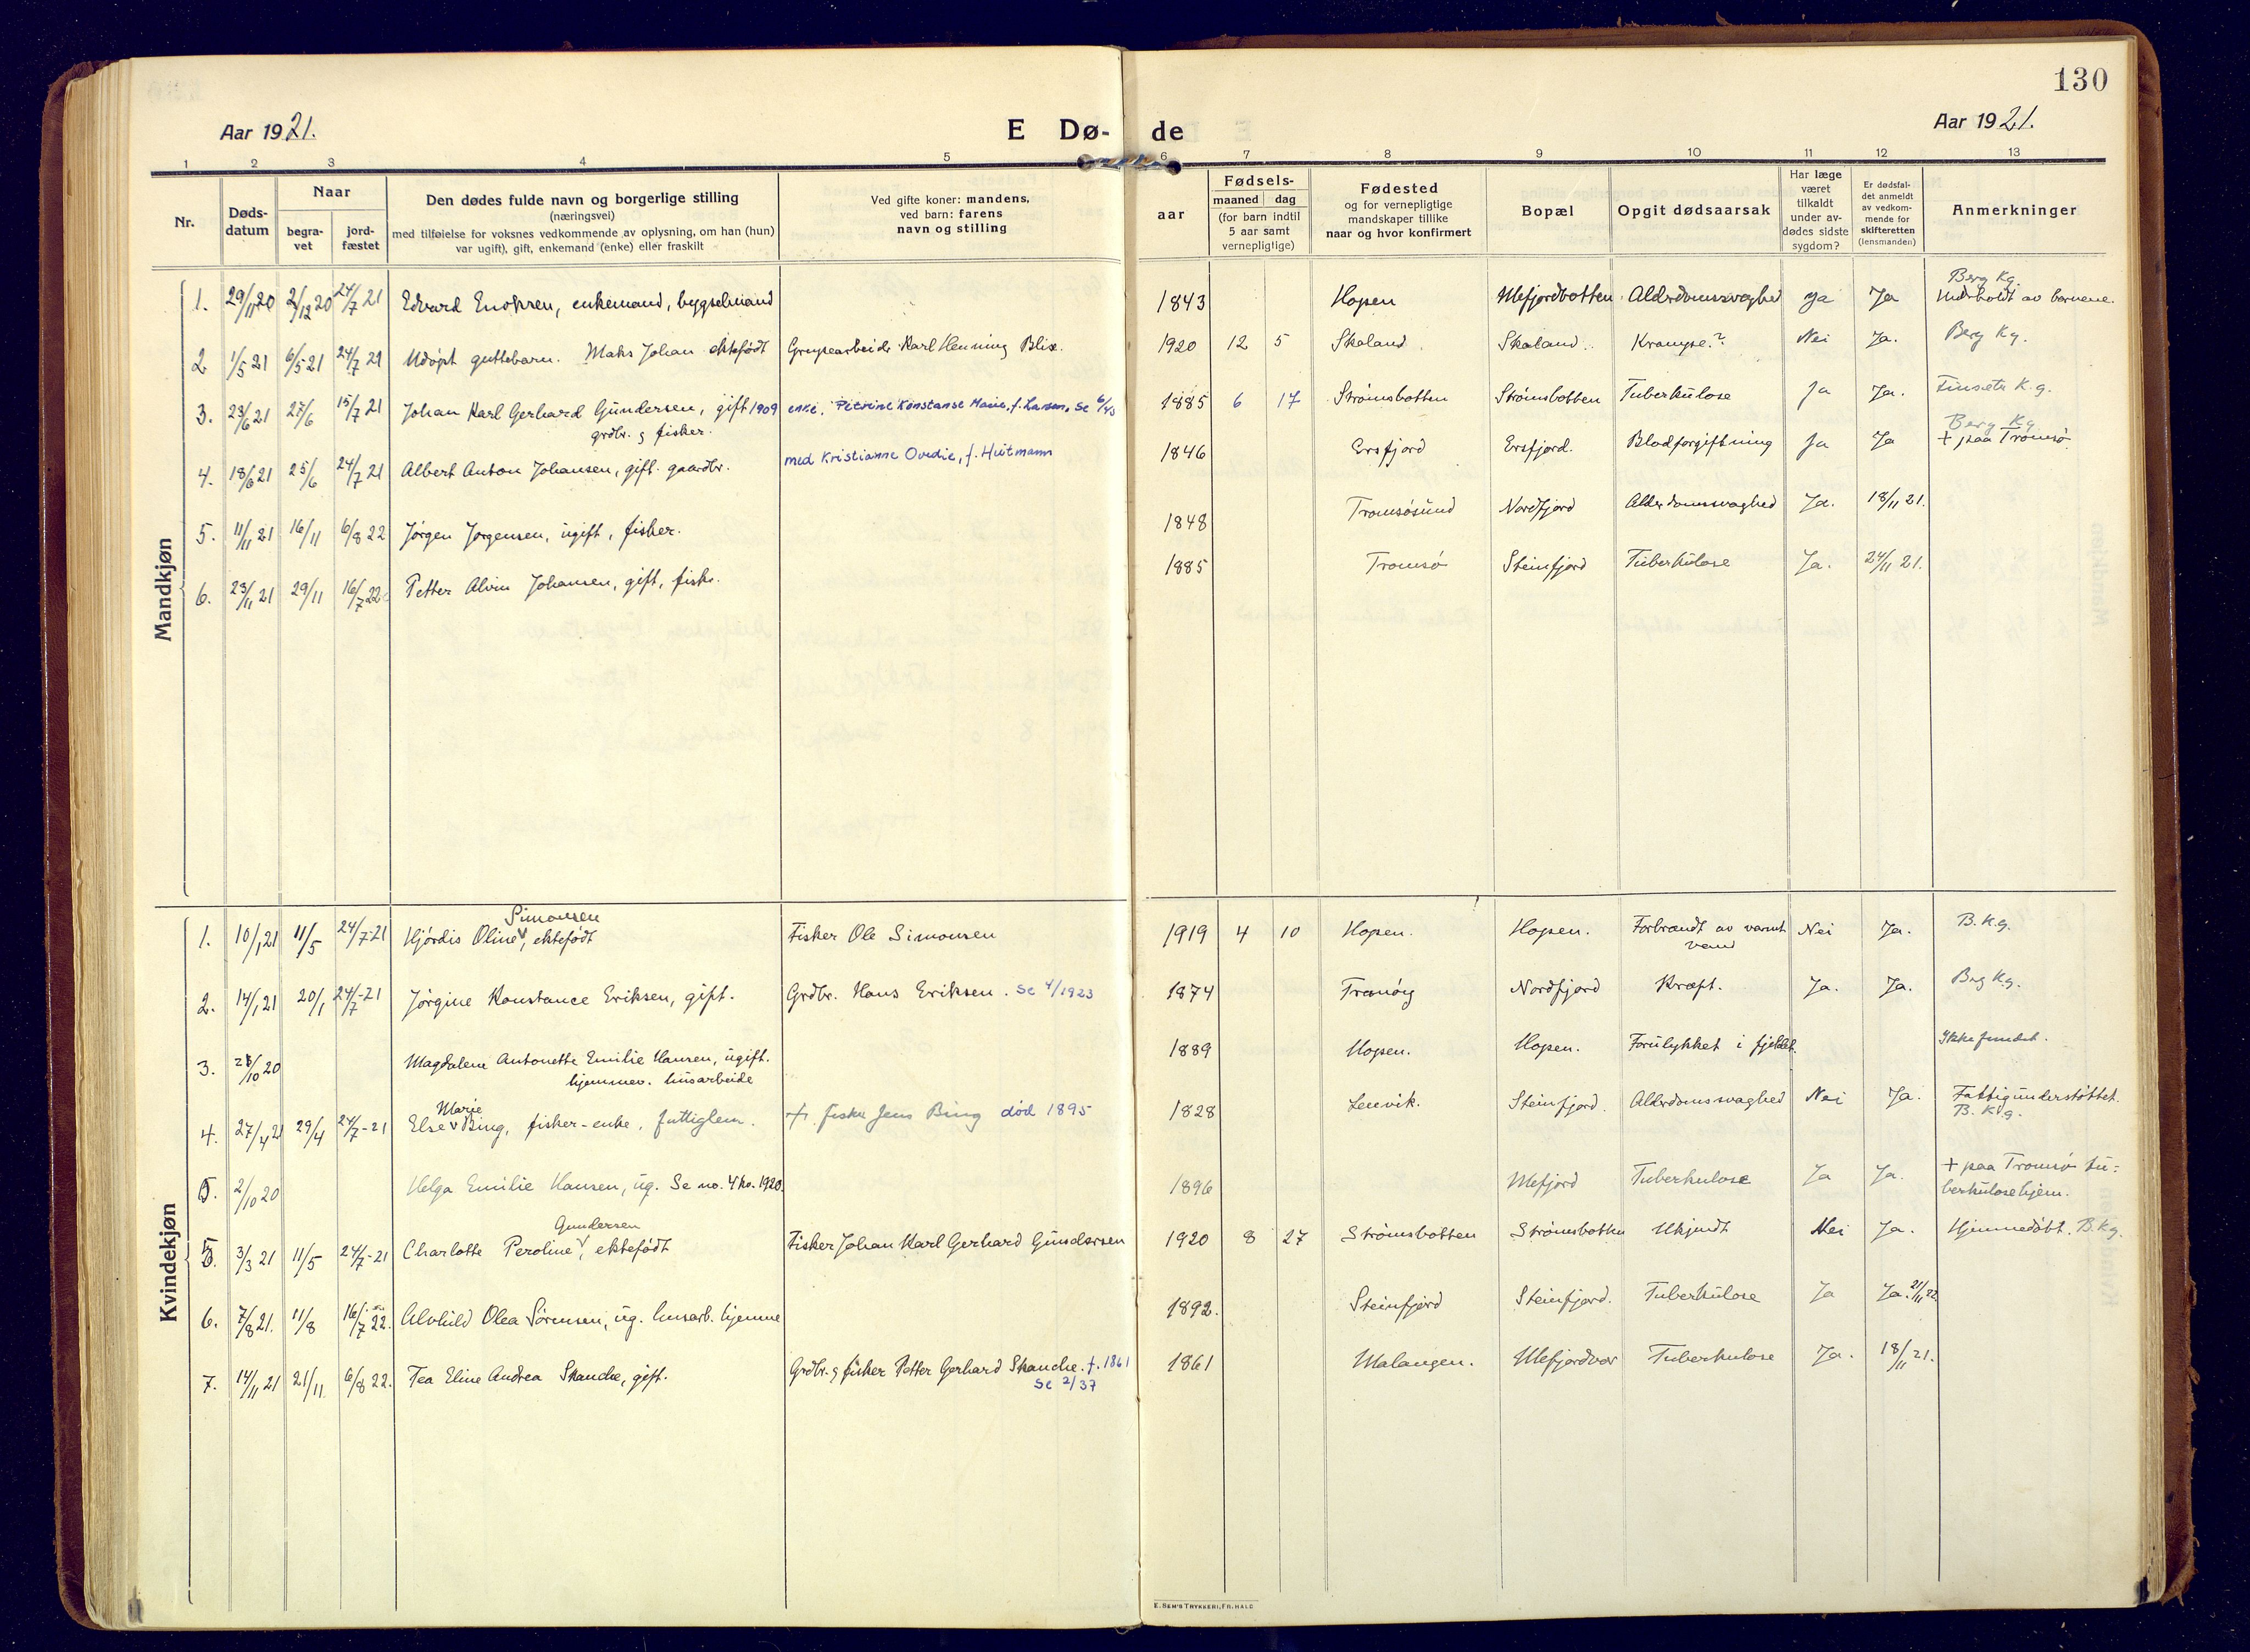 130
Aar 1921.
E Dø-
de
Aar 1921.
1 2 3 4 5 6 7 8 9 10 11 12 13
Nr.
Døds-
datum
Naar
begra-
vet
jord-
fæstet
Den dødes fulde navn og borgerlige stilling
(næringsvei)
med tilføielse for voksnes vedkommende av oplysning, om han (hun)
var ugift), gift, enkemand (enke) eller fraskilt
Ved gifte koner: mandens,
ved barn: farens
navn og stilling
Fødsels-
aar
maaned dag
(for barn indtil
5 aar samt
vernepligtige)
Fødested
og for vernepligtige
mandskaper tillike
naar og hvor konfirmert
Bopæl
Opgit dødsaarsak
Har læge
været
tilkaldt
under av-
dødes sidste
sygdom?
Er dødsfal-
det anmeldt
av vedkom-
mende for
skifteretten
(lensmanden)
Anmerkninger
Mandkjøn
Berg Kg.
1. 29/11 20 2/12 20 24/7 21 Edvard Enoksen, enkemand, bygselmand 1843 Hopen Mefjordbotten Alderdomssvaghed ja Ja Underholdt av barnene.
2 1/5 21 6/5 21 24/7 21 Udøpt guttebarn. Maks Johan ektefødt Grupearbeider Karl Henning Blix. 1920 12 5 Skaland Skaland. Krampe? Nei Ja. Berg Kg.
3. 23/6 21 27/6 15/7 21 Johan Karl Gerhard Gundersen, gift 1909 enke, Petrine Konstanse Marie, f. Larsen, Se 6/43 1885 6 17 Strømsbotten Strømsbotten Tuberkulose Ja Ja. Finsæter K.g.
grdbr. & fisker.
Berg Kg
4. 18/6 21 25/6 24/7 21 Albert Anton Johansen, gift. gaardbr. med Kristianne Ovedie, f. Huitmann 1846 Ersfjord Ersfjord. Blodforgiftning Ja Ja + paa Tromsø.
5. 11/11 21 16/11 6/8 22 Jørgen Jørgensen, ugift, fisker. 1848 Tromsøsund Nordfjord Alderdomssvaghed Ja. 18/11 21.
6. 23/11 21 29/11 16/7 22 Petter Alvin Johansen, gift, fisk. 1885 Tromsø Steinfjord Tuberkulose Ja. 24/11 21.
Kvindekjøn
Simonsen
1. 10/1 21 11/5 24/7-21 Hjørdis Oline, ektefødt Fisker Ole Simonsen 1919 4 10 Hopen. Hopen. Forbrændt av varmt Nei Ja. B.K.g.
vand
2. 14/1 21 20/1 24/7-21 Jørgine Konstance Eriksen, gift. Grdbr. Hans Eriksen. Se 4/1923 1874 Tranøy Nordfjord Kræft. Ja. Ja. Brg Kg.
3. /10 20 Magdalene Antonette Emilie Hansen, ugift. 1889 Hopen. Hopen. Forulykket i fjeldet. Ikke fundet.
hjemmev. husarbeide
Marie
4. 27/4 21 29/4 24/7-21 Else Bing, fisker-enke, fattiglem. +. fisker Jens Bing død 1895 1828 Lenvik. Steinfjord. Alderdomssvaghed Nei Ja. Fattigunderstøttet.
B. K.g.
5. 2/10 20 Helga Emilie Hansen, ug. Se no. 4 ko. 1920. 1896 Mefjord Tuberkulose Ja Ja. + paa Tromsø tu=
berkulosehjem.
Gundersen
5. 3/3 21 11/5 24/7-21 Charlotte Peroline, ektefødt Fisker Johan Karl Gerhard Gundersen 1920 8 27 Strømsbotten Strømsbotten Ukjendt Nei Ja. Hjemmedøbt. B.Kg.
6. 7/8 21. 11/8 16/7 22. Alvhild Olea Sørensen, ug. husarb. hjemme 1892. Steinfjord Steinfjord. Tuberkulose Ja Ja. 21/11 22
7. 14/11 21 21/11. 6/8 22. Tea Eline Andrea Skanche, gift. Grdbr. & fisker Petter Gerhard Skanche. f. 1861 1861 Malangen. Mefjordvær Tuberkulose Ja. 18/11 21.
Se 2/37
E. SEM'S TRYKKERI, FR.HALD